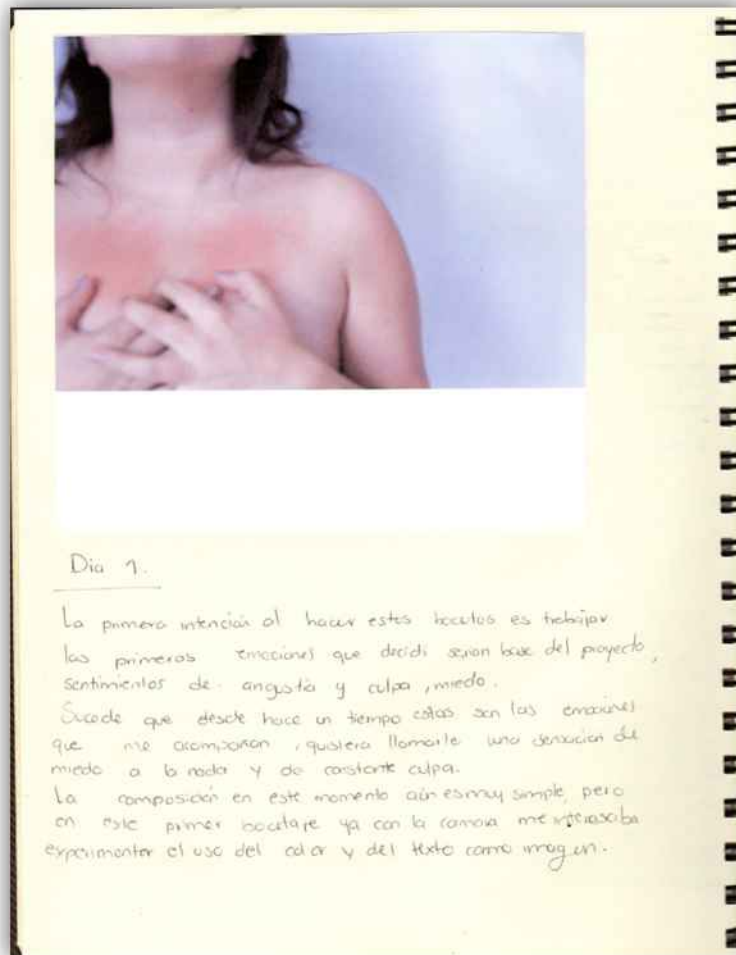 Dia 1.
La primera intención al hacer estos bocetos es trabajar
las primeras emociones que decidi serian base del proyecto,
sentimientos de angustia y culpa, miedo.
Sucede que desde hace un tiempo estas son las emociones
que me acompañan, quisiera llamarle una sensación de
miedo a la nada y de constante culpa.
La composición en este momento aún es muy simple, pero
en este primer bocetaje ya con la camara me interesaba
experimentar el uso del color y del texto como imagen.